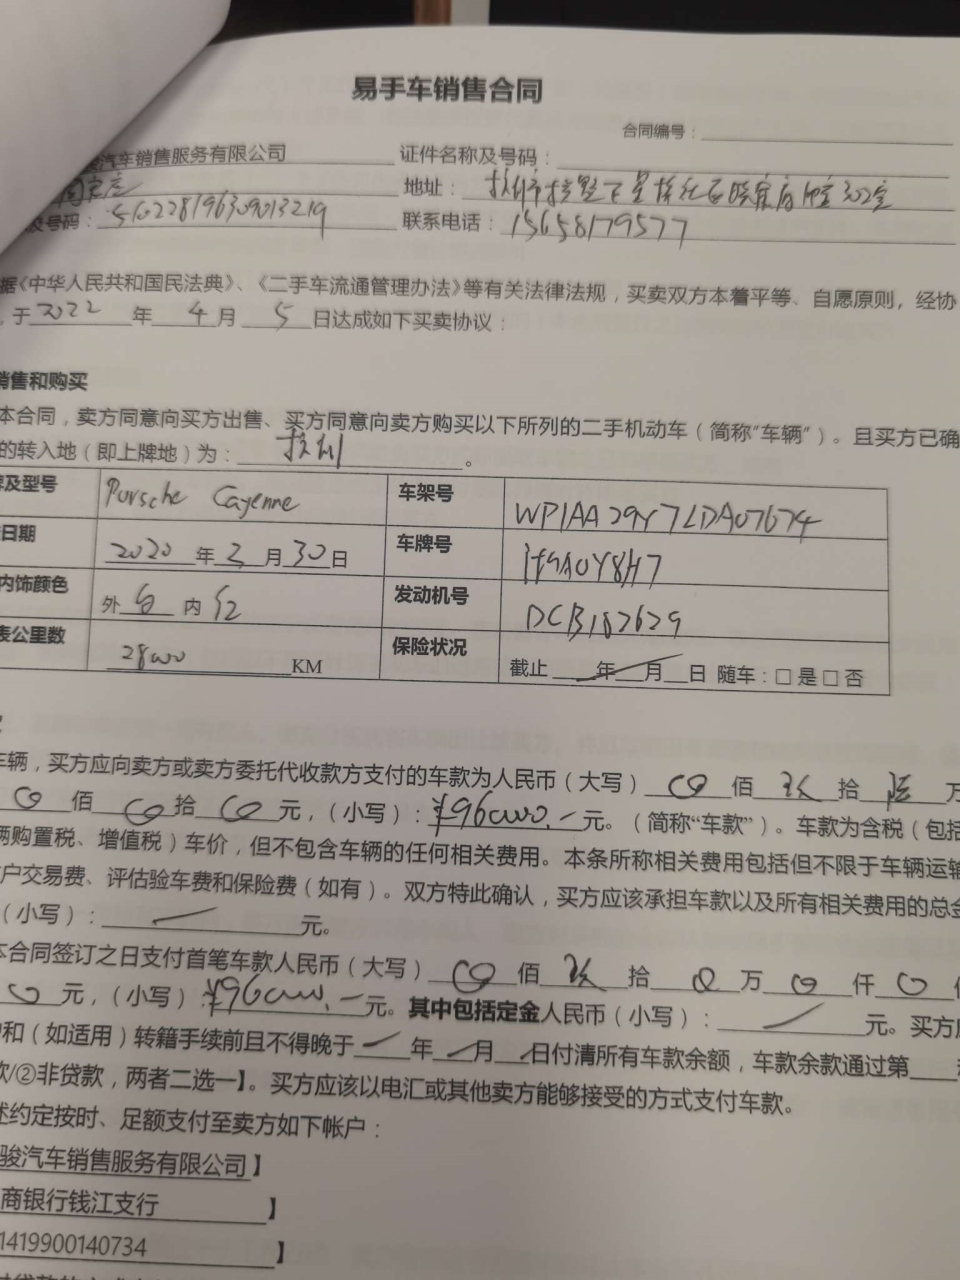 易手车销售合同
合同编号：
骏汽车销售服务有限公司 证件名称及号码：
地址： 302室
及号码：510228196309013219 联系电话：15658179577
据《中华人民共和国民法典》、《二手车流通管理办法》等有关法律法规，买卖双方本着平等、自愿原则，经协
，于2022年4月5日达成如下买卖协议：
销售和购买
本合同，卖方同意向买方出售、买方同意向卖方购买以下所列的二手机动车（简称"车辆"）。且买方已确
的转入地（即上牌地）为：杭州。
牌及型号 Porsche Cayenne 车架号 WP1AA29Y7LDA07674
日期 2020年3月30日 车牌号
内饰颜色 外白内红 发动机号 DCB182629
表公里数 28000KM 保险状况 截止 年 月 日 随车：□是□否
车辆，买方应向卖方或卖方委托代收款方支付的车款为人民币（大写）佰玖拾陆万
佰 拾 元，（小写）：¥960000.－元。（简称“车款”）。车款为含税（包括
辆购置税、增值税）车价，但不包含车辆的任何相关费用。本条所称相关费用包括但不限于车辆运输
户交易费、评估验车费和保险费（如有）。双方特此确认，买方应该承担车款以及所有相关费用的总金
（小写）： 元。
本合同签订之日支付首笔车款人民币（大写）佰玖拾 万 仟
元，（小写）：¥960000.－元。其中包括定金人民币（小写）： 元。买方应
和（如适用）转籍手续前且不得晚于 年 月 日付清所有车款余额，车款余款通过第
款/②非贷款，两者二选一】。买方应该以电汇或其他卖方能够接受的方式支付车款。
述约定按时、足额支付至卖方如下帐户：
骏汽车销售服务有限公司】
商银行钱江支行】
1419900140734】